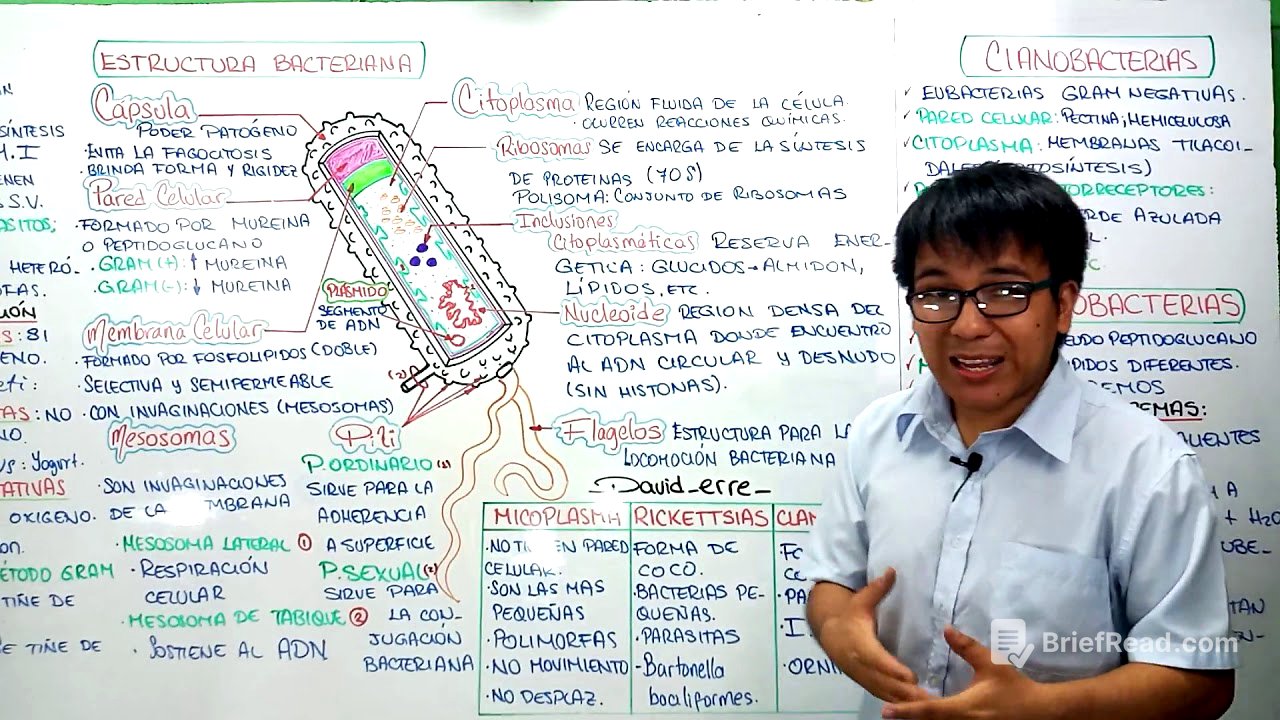 ESTRUCTURA BACTERIANA
Cápsula
PODER PATÓGENO
· EVITA LA FAGOCITOSIS
· BRINDA FORMA Y RIGIDEZ
Pared Celular
· FORMADO POR MUREINA
O PEPTIDOGLUCANO
· GRAM (+): ↑ MUREINA
· GRAM(-): ↓ MUREINA
PLÁSMIDO
SEGMENTO
DE ADN
Membrana Celular
· FORMADO POR FOSFOLIPIDOS (DOBLE)
· SELECTIVA Y SEMIPERMEABLE
· CON INVAGINACIONES (MESOSOMAS)
Mesosomas
· SON INVAGINACIONES
DE LA MEMBRANA
· MESOSOMA LATERAL ①
· RESPIRACIÓN
CELULAR
· MESOSOMA DE TABIQUE ②
· SOSTIENE AL ADN
Pili
P. ORDINARIO (1)
SIRVE PARA LA
ADHERENCIA
A SUPERFICIE
P. SEXUAL (2)
SIRVE PARA
LA CON-
JUGACIÓN
BACTERIANA
(2)
Citoplasma REGIÓN FLUIDA DE LA CÉLULA.
· OCURREN REACCIONES QUÍMICAS.
Ribosomas SE ENCARGA DE LA SÍNTESIS
DE PROTEINAS (70 S)
POLISOMA: CONJUNTO DE RIBOSOMAS
Inclusiones
Citoplasmáticas RESERVA ENER-
GETICA: GLUCIDOS → ALMIDON,
LÍPIDOS, ETC.
Nucleoide REGION DENSA DEL
CITOPLASMA DONDE ENCUENTRO
AL ADN CIRCULAR Y DESNUDO
(SIN HISTONAS).
Flagelos ESTRUCTURA PARA LA
LOCOMOCIÓN BACTERIANA
_David_erre_
MICOPLASMA RICKETTSIAS
· NO TIENEN PARED
CELULAR.
· SON LAS MAS
PEQUEÑAS
· POLIMORFAS
· NO MOVIMIENTO
· NO DESPLAZ.
FORMA DE
COCO.
· BACTERIAS PE-
QUEÑAS.
· PARASITAS
- Bartonella
baciliformes.
CIANOBACTERIAS
✓ EUBACTERIAS GRAM NEGATIVAS.
✓ PARED CELULAR: PECTINA; HEMICELULOSA
✓ CITOPLASMA: MEMBRANAS TILACOI-
AZULADA
PEPTIDOGLUCANO
DIFERENTES.
SÍNTESIS
GRAM
TIÑE DE
TIÑE DE
: NO
: Yogurt.
OXIGENO.
BriefRead.com